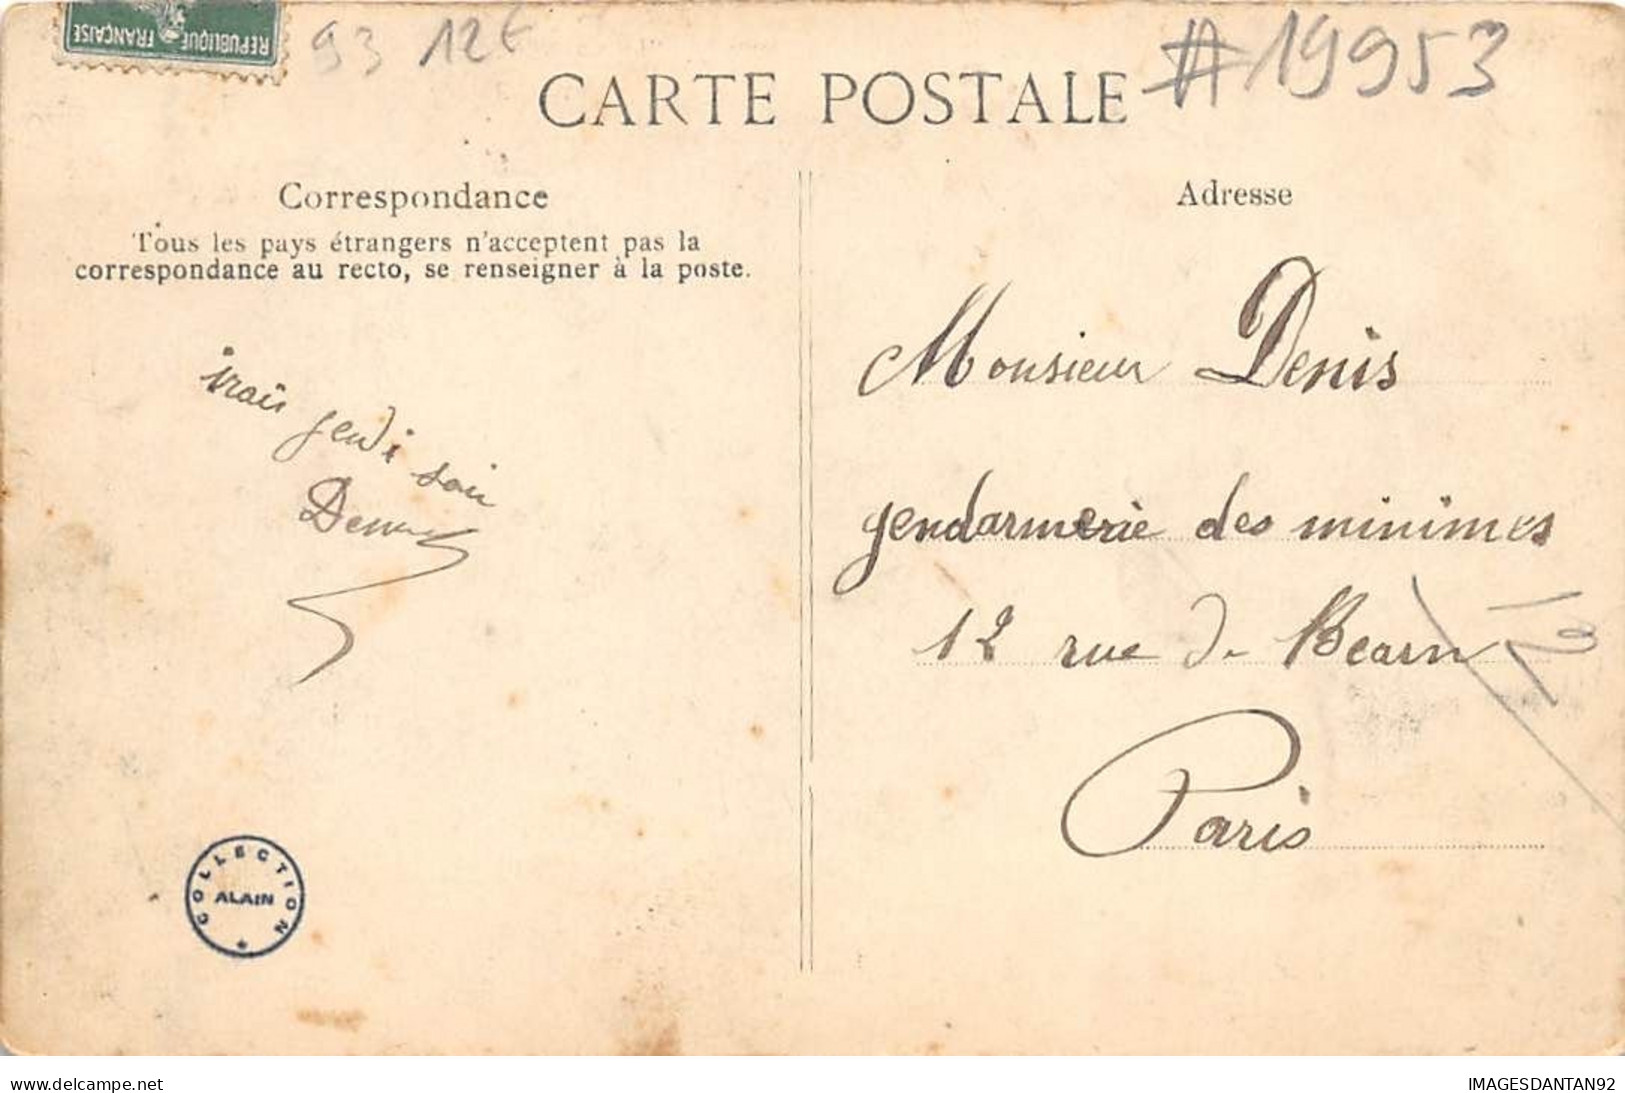 REPUBLIQUE FRANÇAISE
93 12€
#19953
CARTE POSTALE
Correspondance
Tous les pays étrangers n'acceptent pas la
correspondance au recto, se renseigner à la poste.
irais jeudi soir
Adresse
Monsieur Denis
gendarmerie des minimes
12 rue de Bearn
Paris
12
COLLECTION
ALAIN
delcampe.net
IMAGESDANTAN92